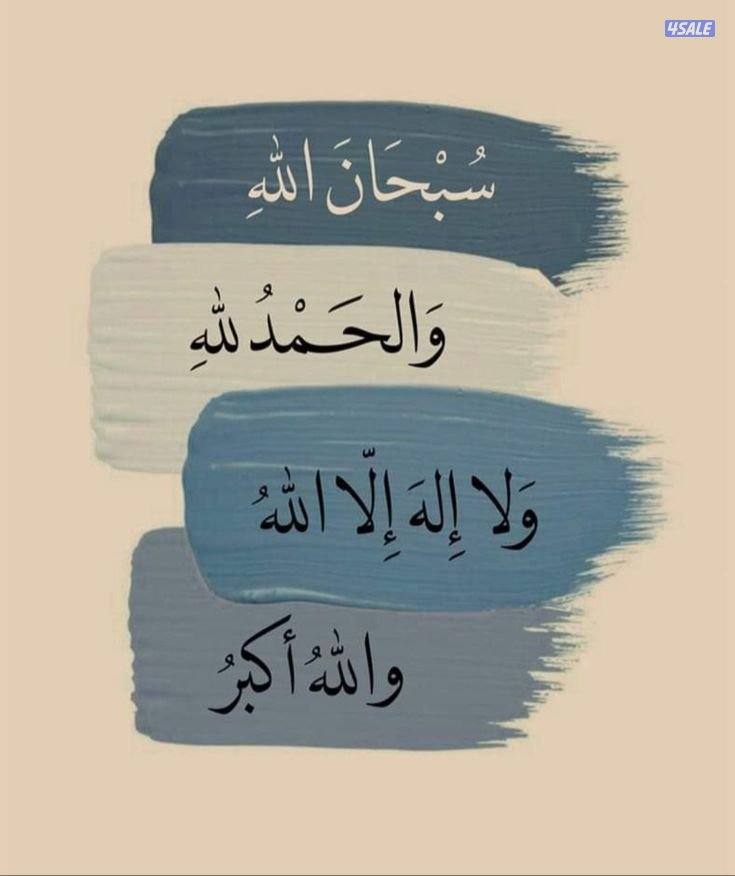 4SALE
سُبْحَانَ اللهِ
وَالحَمْدُ للهِ
وَلا إِلهَ إِلّا اللهُ
واللهُ أكبرُ